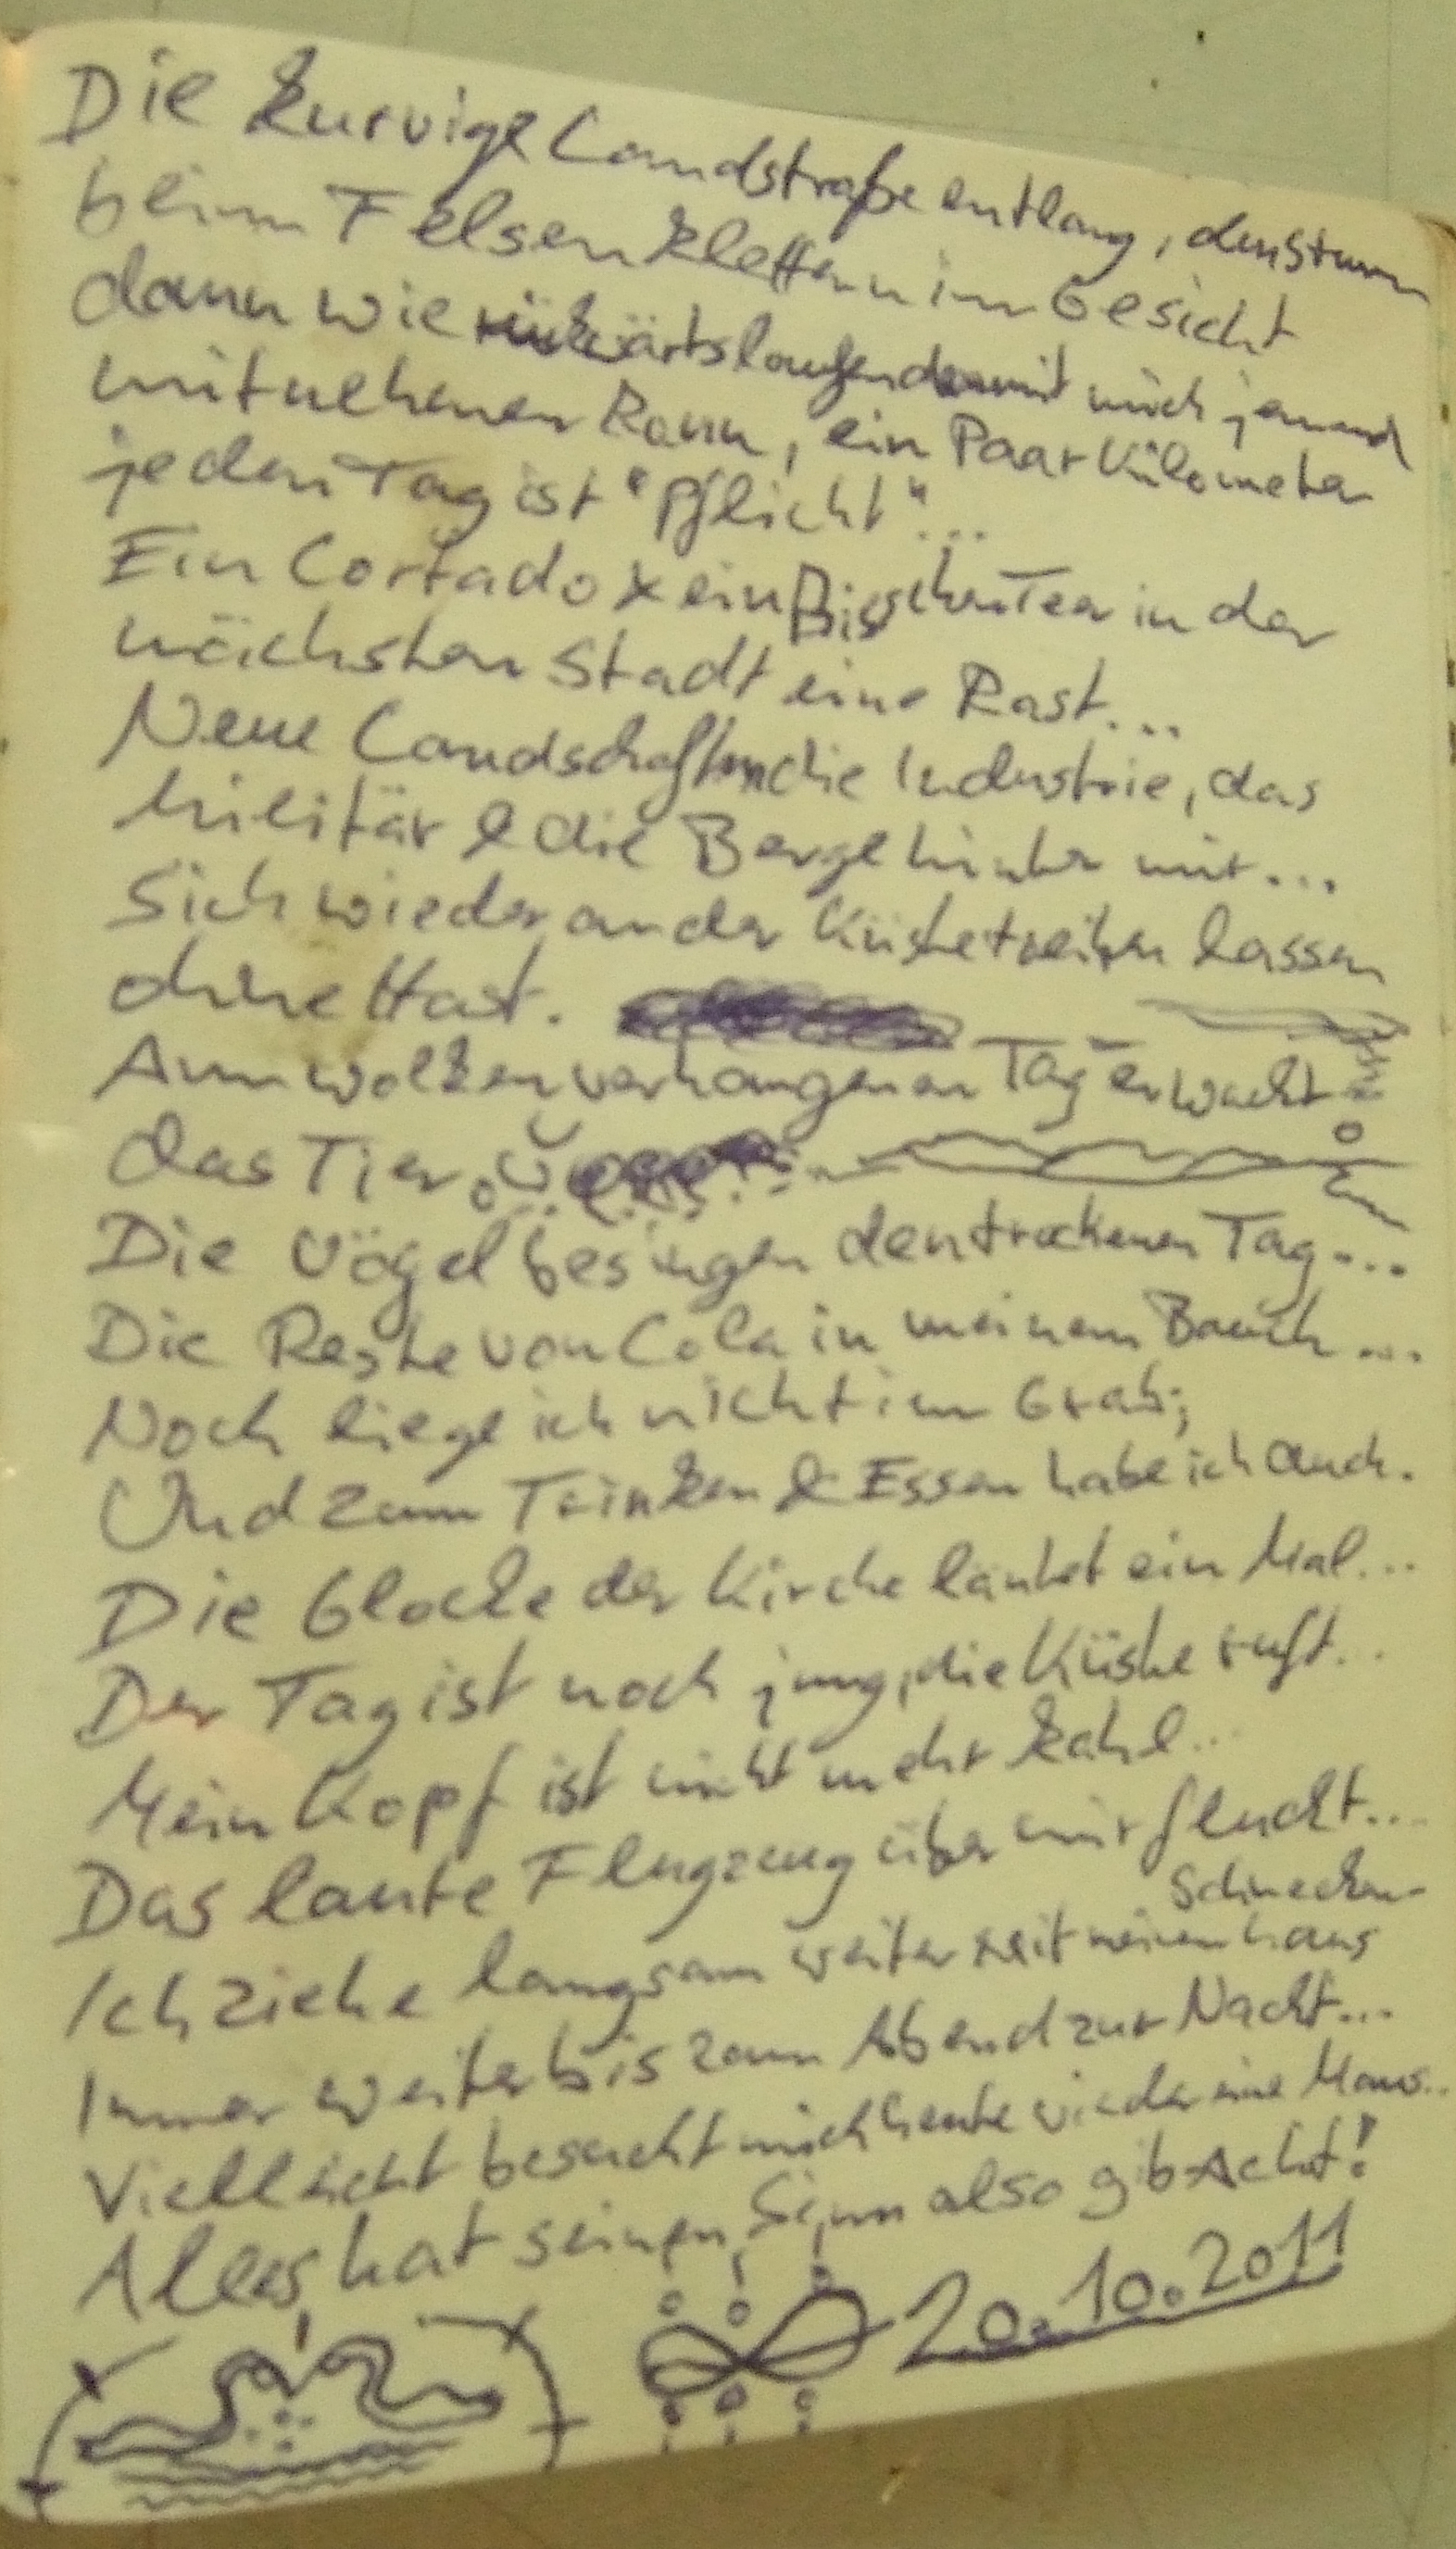 Die kurvige Landstraße entlang, den Sturm
beim Felsenklettern im Gesicht
dann wie rückwärtslaufend damit mich jemand
mitnehmen kann, ein Paar Kilometer
jeden Tag ist "Pflicht"...
Ein Cortado & ein Bisschen Teer in der
nächsten Stadt eine Rast...
Neue Landschaften die Industrie, das
Militär & die Berge hinter mir...
Sich wieder an der Küste treiben lassen
ohne Hast.
Am wolkenverhangenen Tag erwacht
das Tier
Die Vögel besingen den trockenen Tag...
Die Reste von Cola in meinem Bauch...
Noch liege ich nicht im Grab;
Und zum Trinken & Essen habe ich auch.
Die Glocke der Kirche läutet ein Mal...
Der Tag ist noch jung, die Küste ruft...
Mein Kopf ist nicht mehr kahl...
Das laute Flugzeug über mir flucht...
Ich ziehe langsam weiter mit meinem Schnecken-
haus
Immer weiter bis zum Abend zur Nacht...
Vielleicht besucht mich heute wieder eine Maus..
Alles hat seinen Sinn also gib Acht!
20.10.2011